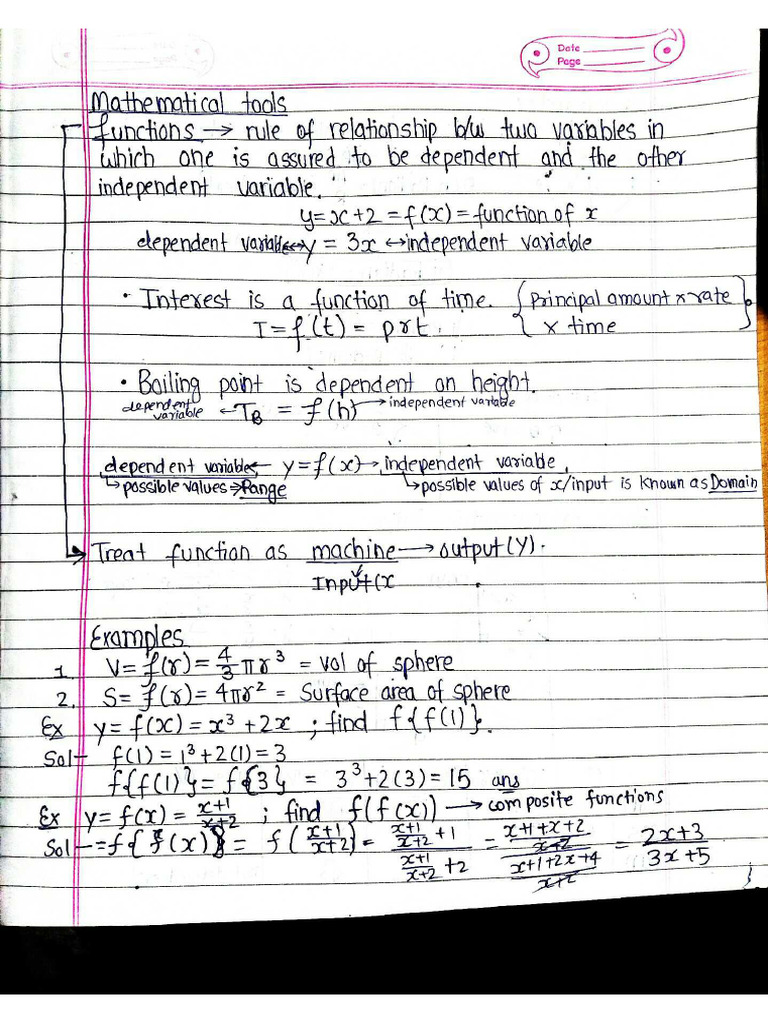 Date
Page
Mathematical tools
functions → rule of relationship b/w two variables in
which one is assured to be dependent and the other
independent variable.
y=x+2 = f(x) = function of x
dependent variable ↔ y = 3x ↔ independent variable
• Interest is a function of time. {Principal amount x rate
x time}
I = f(t) = prt.
• Boiling point is dependent on height.
dependent variable ← T_B = f(h) → independent variable
dependent variables ← y = f(x) → independent variable.
↳ possible values ⇒ Range ↳ possible values of x/input is known as Domain
→ Treat function as machine → output(Y).
Input(x
Examples
1. V= f(r) = 4/3 πr³ = vol of sphere
2. S= f(r) = 4πr² = Surface area of sphere
Ex y= f(x) = x³ + 2x ; find f{f(1)}.
Sol- f(1) = 1³+2(1) = 3
f{f(1)} = f{3} = 3³+2(3) = 15 ans
Ex y= f(x) = x+1/x+2 ; find f(f(x)) → composite functions
Sol- = f{f(x)} = f(x+1/x+2) = (x+1/x+2 + 1)/(x+1/x+2 + 2) = (x+1+x+2/x+2)/(x+1+2x+4/x+2) = 2x+3/3x+5